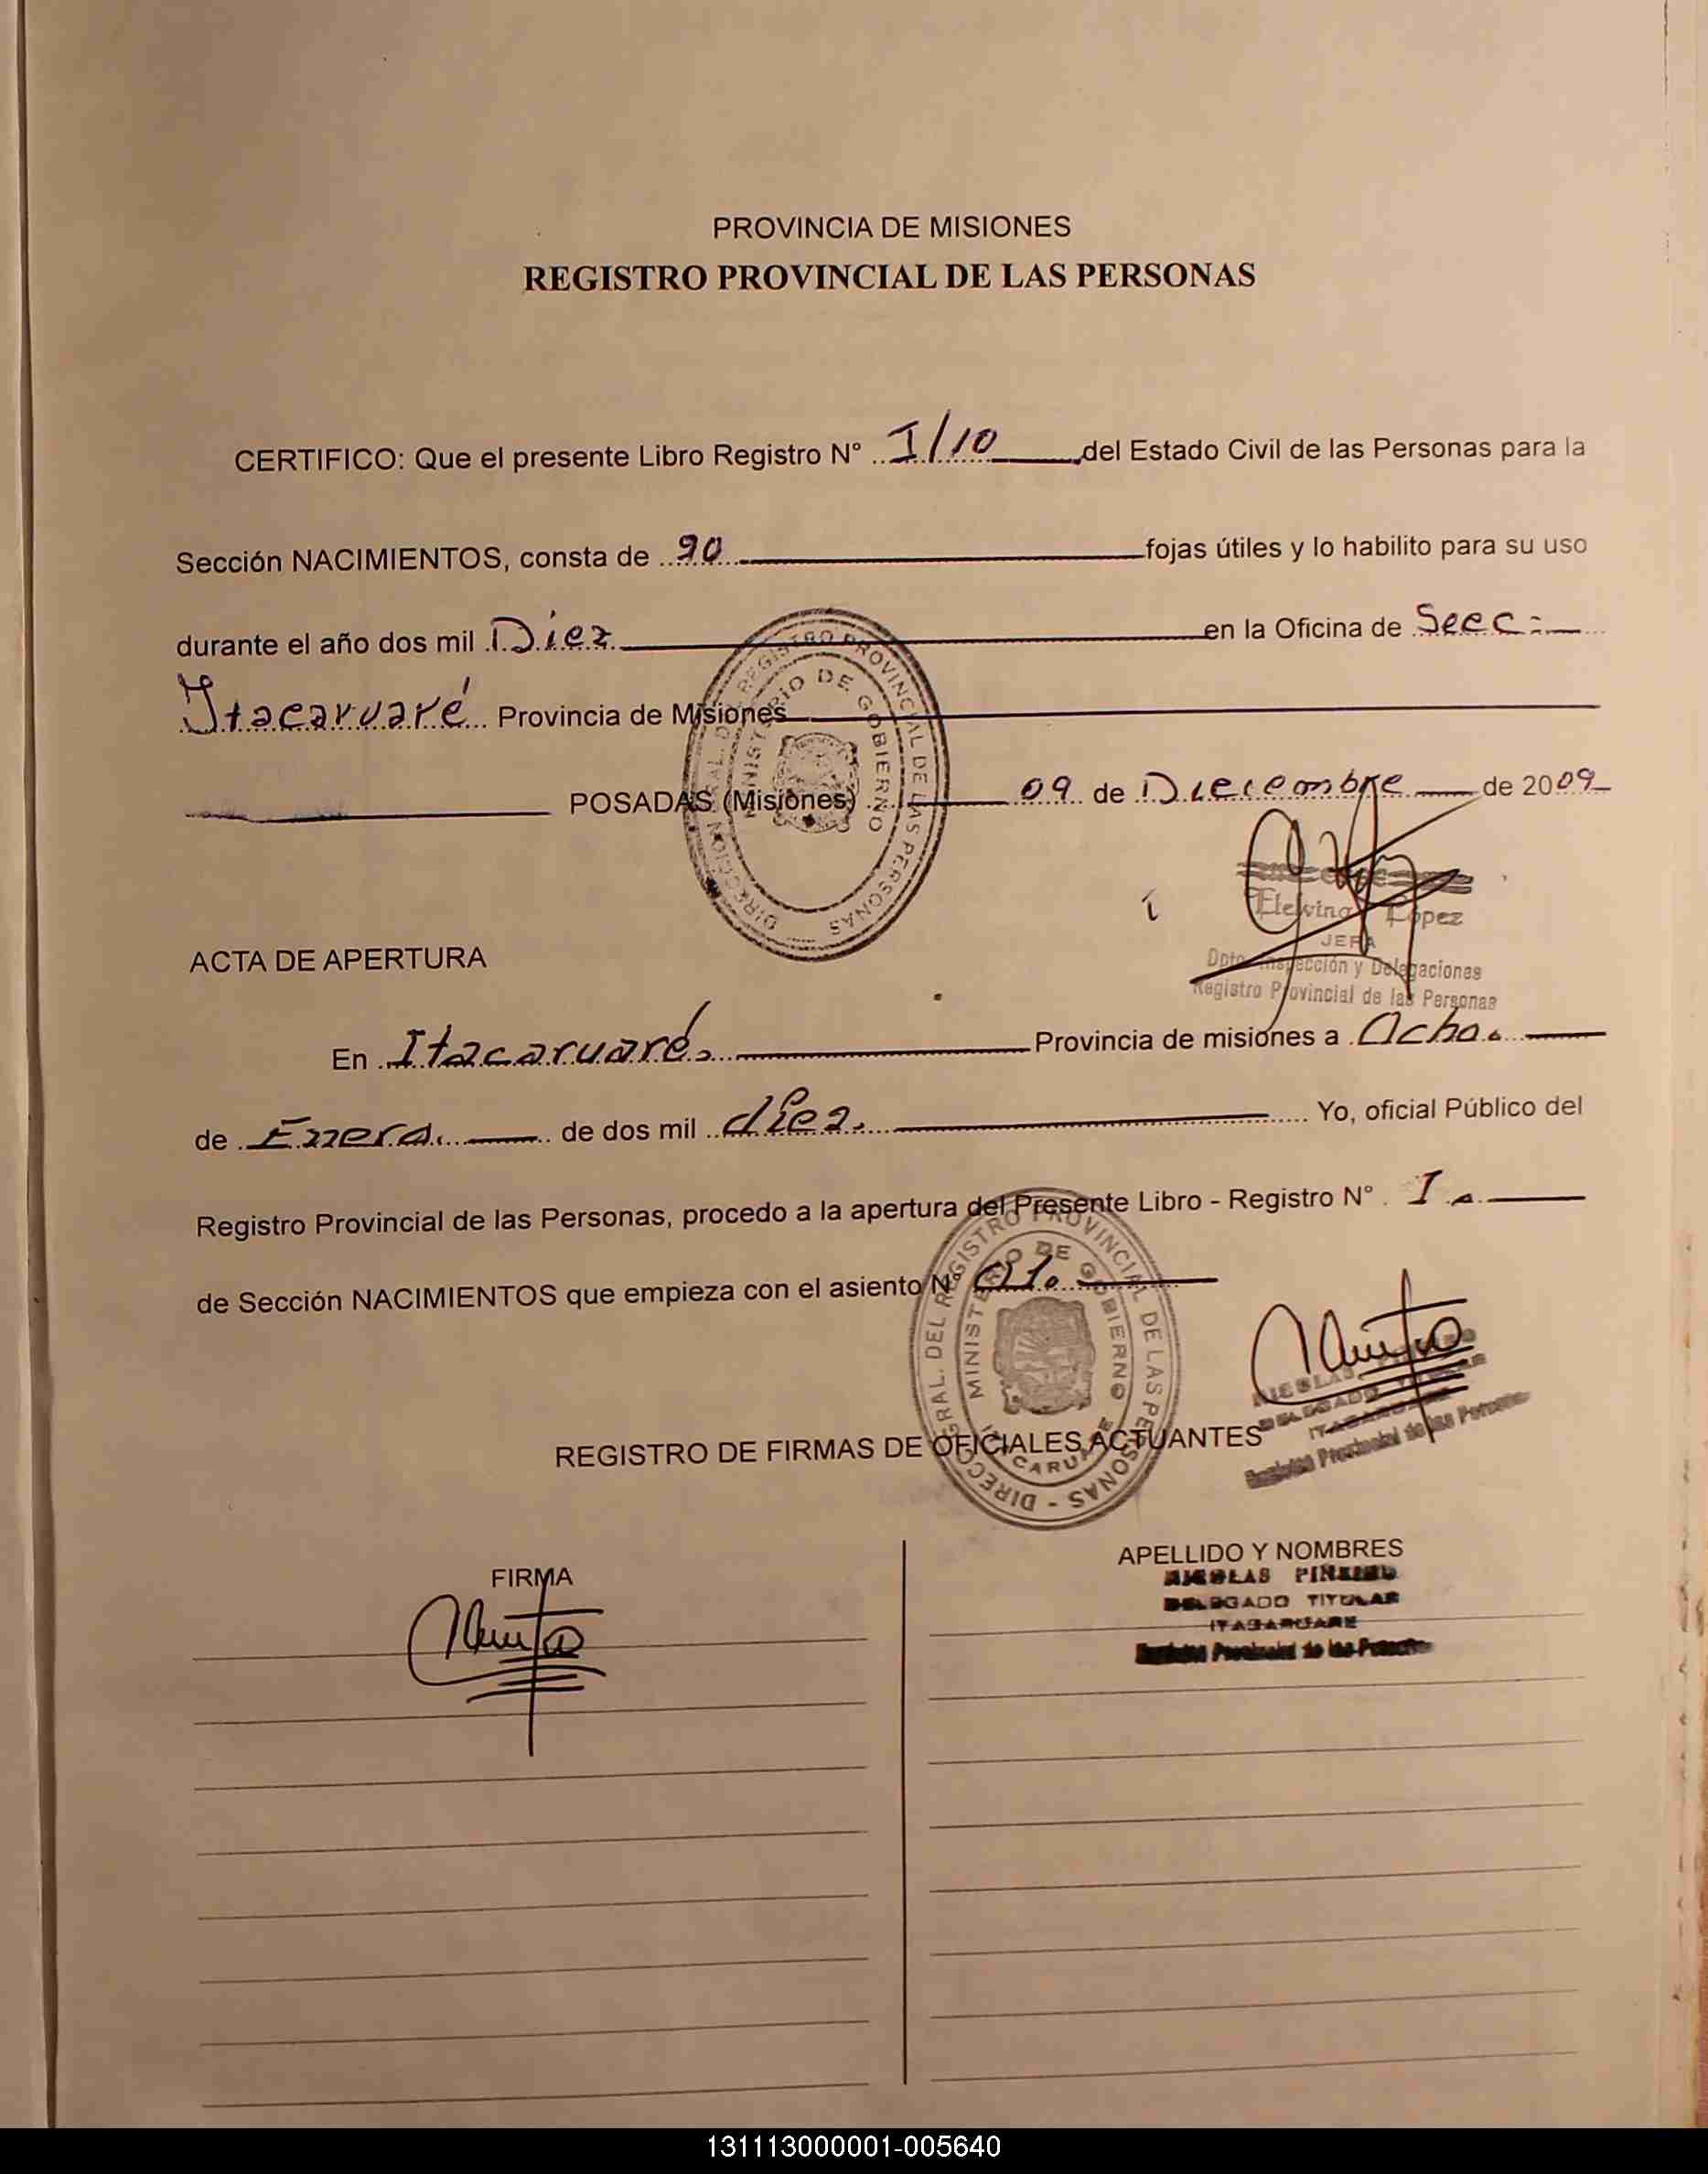 PROVINCIA DE MISIONES
REGISTRO PROVINCIAL DE LAS PERSONAS
CERTIFICO: Que el presente Libro Registro N° I/10 del Estado Civil de las Personas para la
Sección NACIMIENTOS, consta de 90 fojas útiles y lo habilito para su uso
durante el año dos mil Diez en la Oficina de Secc:
Itacaruaré Provincia de Misiones
POSADAS (Misiones) 09 de Diciembre de 2009
DIRECCION GRAL. DEL REGISTRO PROVINCIAL DE LAS PERSONAS
MINISTERIO DE GOBIERNO
Etelvina López
JEFA
Dpto. Inspección y Delegaciones
Registro Provincial de las Personas
ACTA DE APERTURA
En Itacaruaré. Provincia de misiones a Ocho.
de Enero. de dos mil diez. Yo, oficial Público del
Registro Provincial de las Personas, procedo a la apertura del Presente Libro - Registro N° I.
de Sección NACIMIENTOS que empieza con el asiento N° 01.
DIRECC. GRAL. DEL REGISTRO PROVINCIAL DE LAS PERSONAS
MINISTERIO DE GOBIERNO
ITACARUARE
NICOLAS
DELEGADO TITULAR
ITACARUARE
Registro Provincial de las Personas
REGISTRO DE FIRMAS DE OFICIALES ACTUANTES
FIRMA
APELLIDO Y NOMBRES
NICOLAS
DELEGADO TITULAR
ITACARUARE
Registro Provincial de las Personas
131113000001-005640